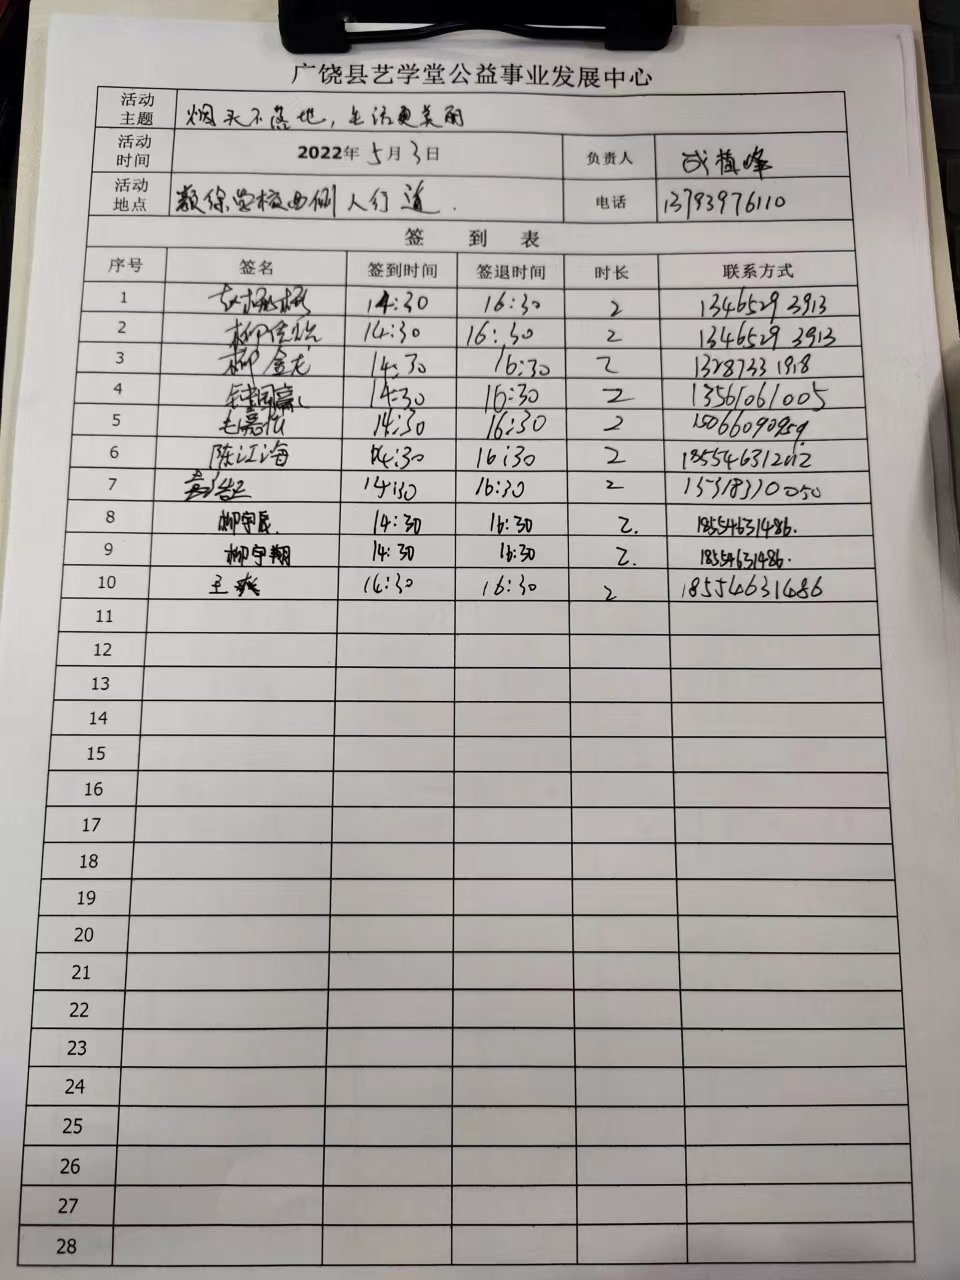 广饶县艺学堂公益事业发展中心
活动主题 烟头不落地，生活更美丽
活动时间 2022年5月3日 负责人 峰
活动地点 学校西侧人行道. 电话 13793976110
签 到 表
序号 签名 签到时间 签退时间 时长 联系方式
1 14:30 16:30 2 13465293913
2 柳佳怡 14:30 16:30 2 13465293913
3 柳金龙 14:30 16:30 2 13287331918
4 14:30 16:30 2 13561061005
5 毛嘉怡 14:30 16:30 2 15066090959
6 陈江海 14:30 16:30 2 18554631202
7 14:30 16:30 2 15318370050
8 柳宇辰. 14:30 16:30 2. 18554631486.
9 柳宇翔 14:30 16:30 2. 18554631486.
10 王爽 14:30 16:30 2 18554631486
11
12
13
14
15
16
17
18
19
20
21
22
23
24
25
26
27
28